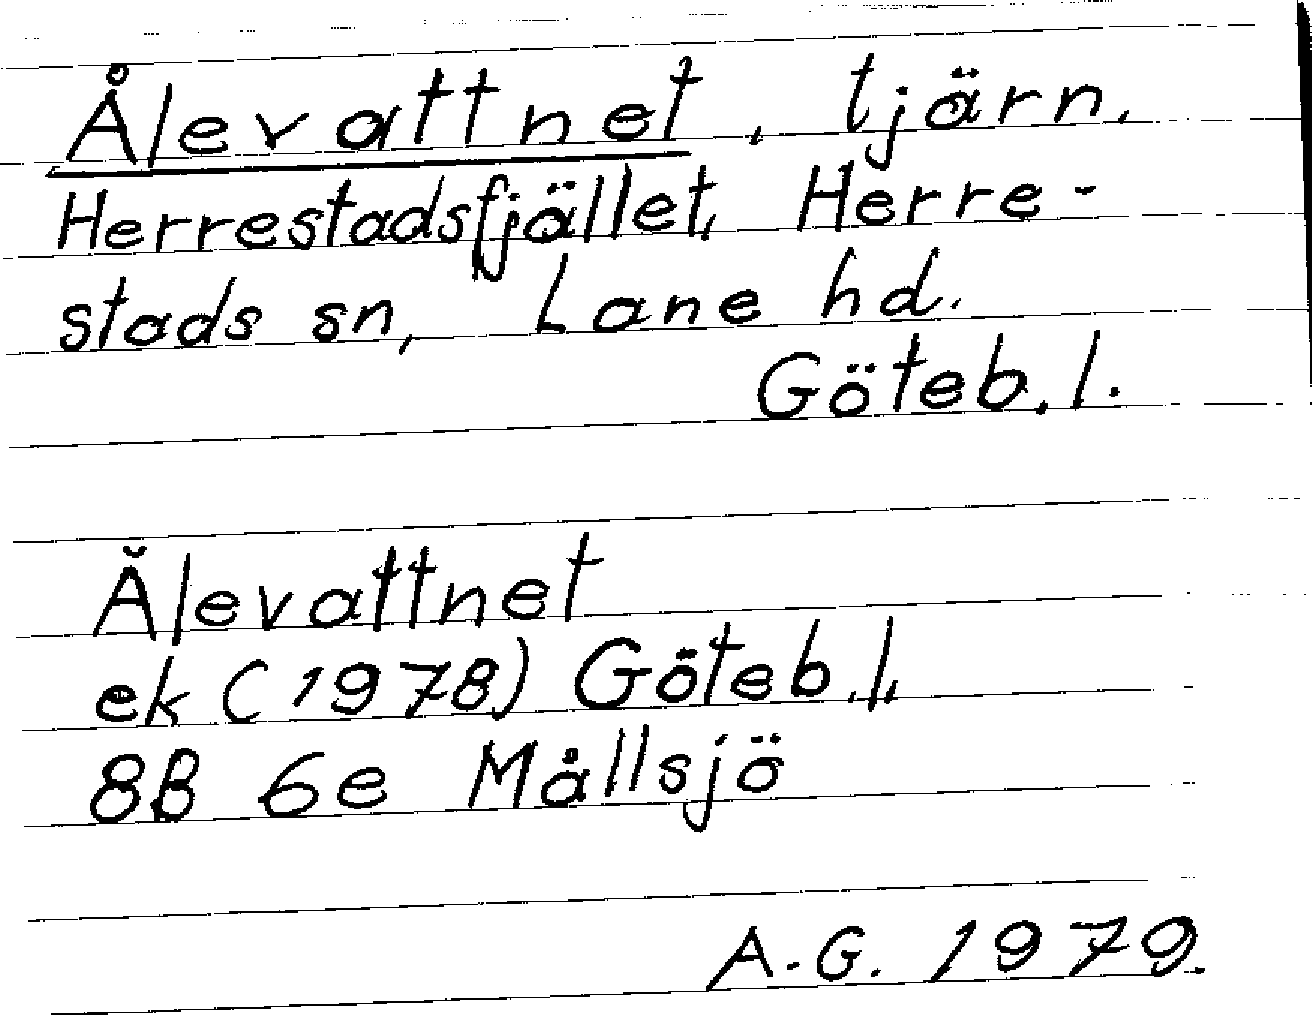 Ålevattnet, tjärn.
Herrestadsfjället, Herre-
stads sn, Lane hd.
Göteb. l.
Ålevattnet
ek (1978) Göteb. l.
8B 6e Mållsjö
A.G. 1979.